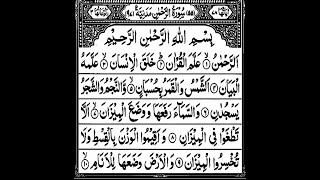 سُوْرَةُ الرَّحْمٰنِ مَدَنِيَّةٌ
بِسْمِ اللهِ الرَّحْمٰنِ الرَّحِيْمِ
اَلرَّحْمٰنُ ۙ۝۱ عَلَّمَ الْقُرْاٰنَ ؕ۝۲ خَلَقَ الْاِنْسَانَ ۙ۝۳ عَلَّمَهُ
الْبَيَانَ ۝۴ اَلشَّمْسُ وَالْقَمَرُ بِحُسْبَانٍ ۝۵ وَّالنَّجْمُ وَالشَّجَرُ
يَسْجُدٰنِ ۝۶ وَالسَّمَآءَ رَفَعَهَا وَوَضَعَ الْمِيْزَانَ ۙ۝۷ اَلَّا
تَطْغَوْا فِى الْمِيْزَانِ ۝۸ وَاَقِيْمُوا الْوَزْنَ بِالْقِسْطِ وَلَا
تُخْسِرُوا الْمِيْزَانَ ۝۹ وَالْاَرْضَ وَضَعَهَا لِلْاَنَامِ ۙ۝۱۰